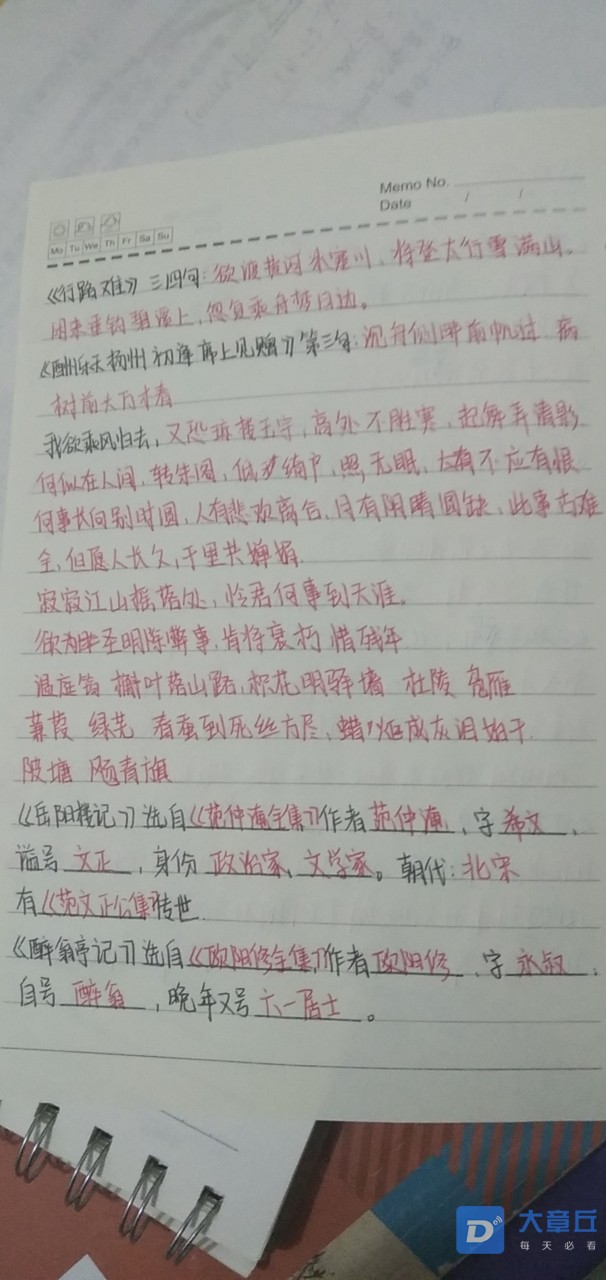 Memo No.
Date / /
Mo Tu We Th Fr Sa Su
《行路难》三四句：欲渡黄河冰塞川，将登太行雪满山。
闲来垂钓碧溪上，忽复乘舟梦日边。
《酬乐天扬州初逢席上见赠》第三句：沉舟侧畔前帆过 病
树前头万木春
我欲乘风归去，又恐琼楼玉宇，高处不胜寒，起舞弄清影
何似在人间，转朱阁，低绮户，照无眠，不应有恨
何事长向别时圆，人有悲欢离合，月有阴晴圆缺，此事古难
全，但愿人长久，千里共婵娟。
寂寂江山摇落处，怜君何事到天涯。
欲为圣明除弊事，肯将衰朽惜残年
温庭筠 槲叶落山路，枳花明驿墙 杜陵 凫雁
蒹葭 绿芜 春蚕到死丝方尽，蜡炬成灰泪始干
陂塘 飐青旗
《岳阳楼记》选自《范仲淹全集》作者范仲淹，字希文，
谥号文正，身份政治家、文学家。朝代：北宋
有《范文正公集》传世
《醉翁亭记》选自《欧阳修全集》作者欧阳修，字永叔，
自号醉翁，晚年又号六一居士。
大章丘
每天必看